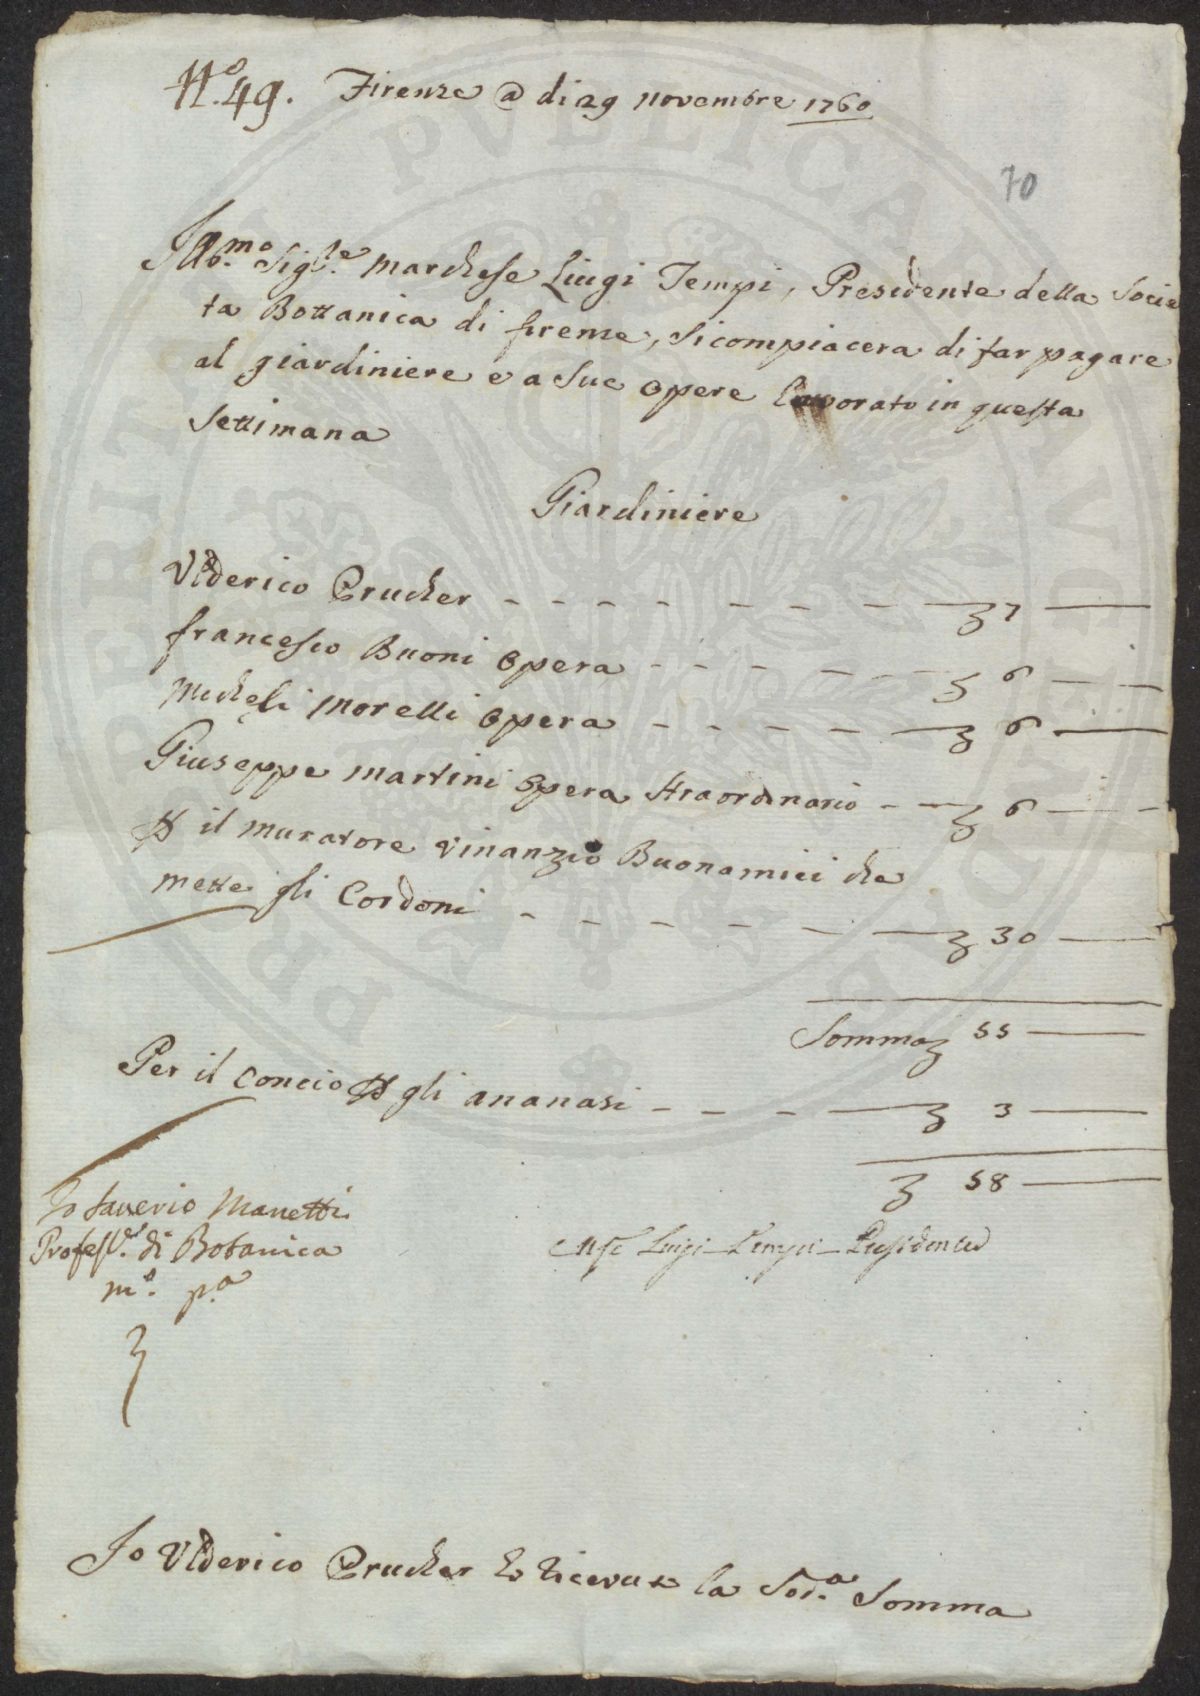 N.o 49. Firenze @ di 29 novembre 1760
70
Ill.mo Sig.re Marchese Luigi Tempi, Presidente della Socie
ta Bottanica di firenze, si compiacera di far pagare
al giardiniere e a Sue opere lavorato in questa
Settimana
Giardiniere
Vlderico Prucher - - - - - - - £ 7 —
francesco Buoni opera - - - - - £ 6 —
Micheli Morelli opera - - - - - £ 6 —
Giuseppe Martini opera straordinario - - £ 6 —
il muratore vinanzio Buonamici che
mette gli Cordoni - - - - - £ 30 —
Somma £ 55 —
Per il concio gli ananasi - - - £ 3 —
£ 58 —
Io Saverio Manetti
Profess.re di Botanica
m.o p.a
Luigi Tempi Presidente
Io Vlderico Prucher ho ricevuto la Sod.a Somma
PVBLICAE